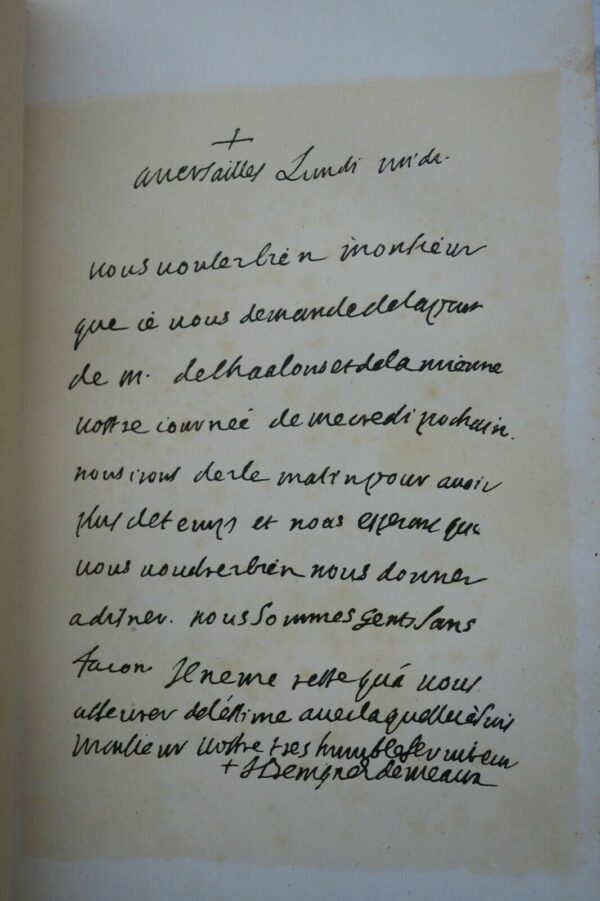 +
aversailles Lundi midi.
vous voulez bien monsieur
que ie vous demande de la part
de M. de Chaalons et de la mienne
vostre iournée de mecredi prochain.
nous irons dez le matin pour avoir
plus de temps et nous esperons que
vous voudrez bien nous donner
a diner. nous sommes gents sans
facon Il ne me reste quá vous
asseurer de léstime avec laquelle ie suis
Monsieur vostre tres humble serviteur
+ J Benigne é de meaux